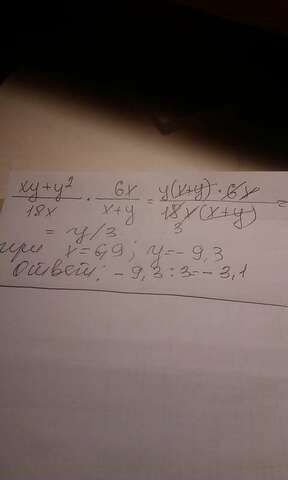 xy+y²/18x · 6x/x+y = y(x+y)·6x/18x(x+y) =
3
= y/3
при x=6,9; y=-9,3
Ответ: -9,3:3=-3,1